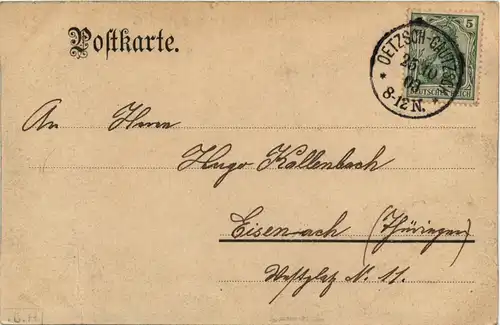 Postkarte.
5
OETZSCH-GAUTZSCH
25 10
03
8-12 N.
DEUTSCHES REICH
An Herrn
Hugo Kallenbach
Eisenach (Thüringen)
Westplatz N. 11.